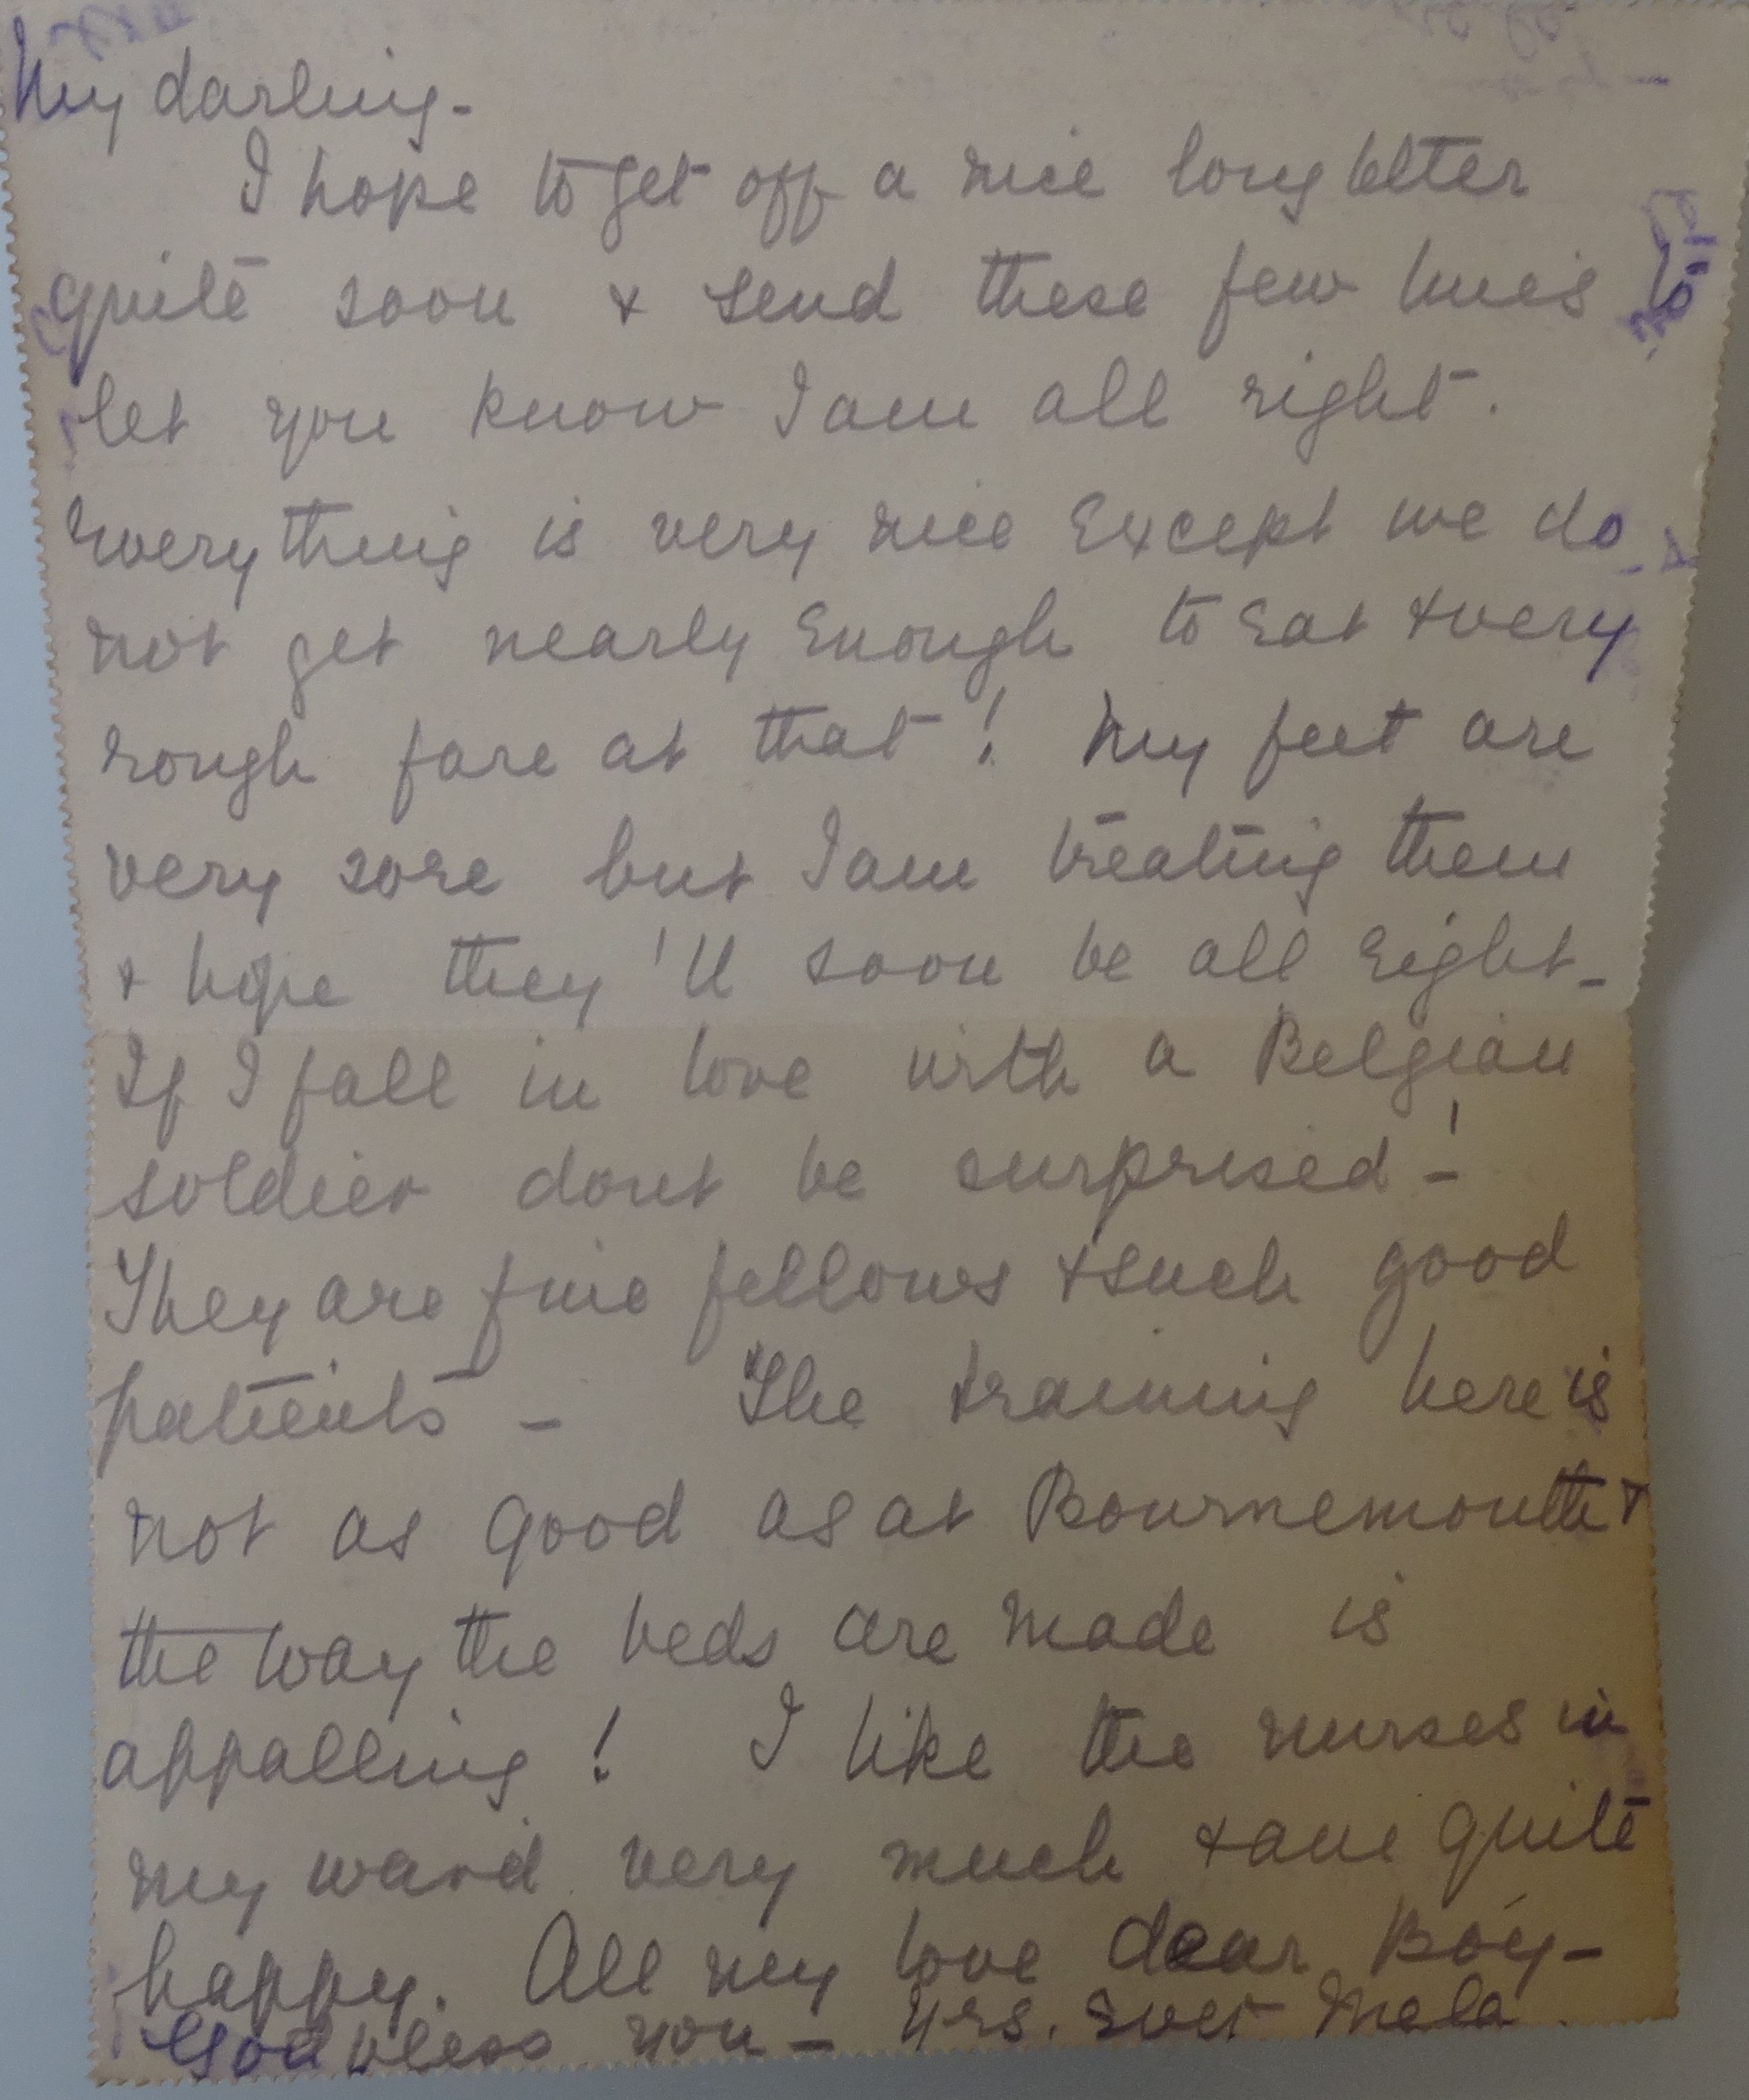 My darling -
I hope to get off a nice long letter
quite soon & send these few lines to
let you know I am all right.
Everything is very nice Except we do
not get nearly Enough to Eat & very
rough fare at that! My feet are
very sore but I am treating them
& hope they'll soon be all right -
If I fall in love with a Belgian
soldier dont be surprised -!
They are fine fellows & such good
patients - The training here is
not as good as at Bournemouth &
the way the beds are made is
appalling! I like the nurses in
my ward very much & am quite
happy. All my love dear Boy -
God bless you - Yrs. Ever Mela.